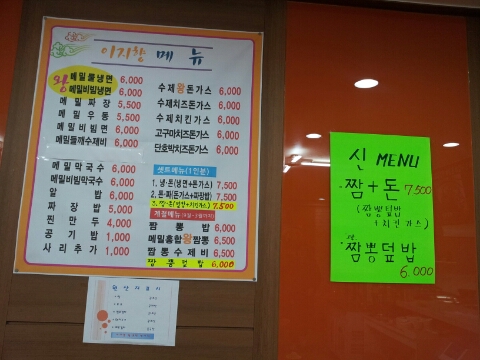 이지항 메뉴
왕 메밀물냉면 6,000
메밀비빔냉면 6,000
메밀짜장 5,500
메밀우동 5,500
메밀비빔면 6,000
메밀들깨수제비 6,000
메밀막국수 6,000
메밀비빔막국수 6,000
알밥 6,000
짜장밥 5,000
찐만두 4,000
공기밥 1,000
사리추가 1,000
수제왕돈가스 6,000
수제치즈돈가스 6,000
수제치킨가스 6,000
고구마치즈돈가스 6,000
단호박치즈돈가스 6,000
셋트메뉴(1인분)
1. 냉·돈(냉면+돈가스) 7,500
2. 돈·짜(돈가스+짜장밥) 7,500
7,500
계절메뉴
짬뽕밥 6,000
메밀홍합왕짬뽕 6,500
짬뽕수제비 6,500
짬뽕덮밥 6,000
신 MENU
·짬+돈 7500
(짬뽕덮밥
+치킨가스)
·짬뽕덮밥
6.000